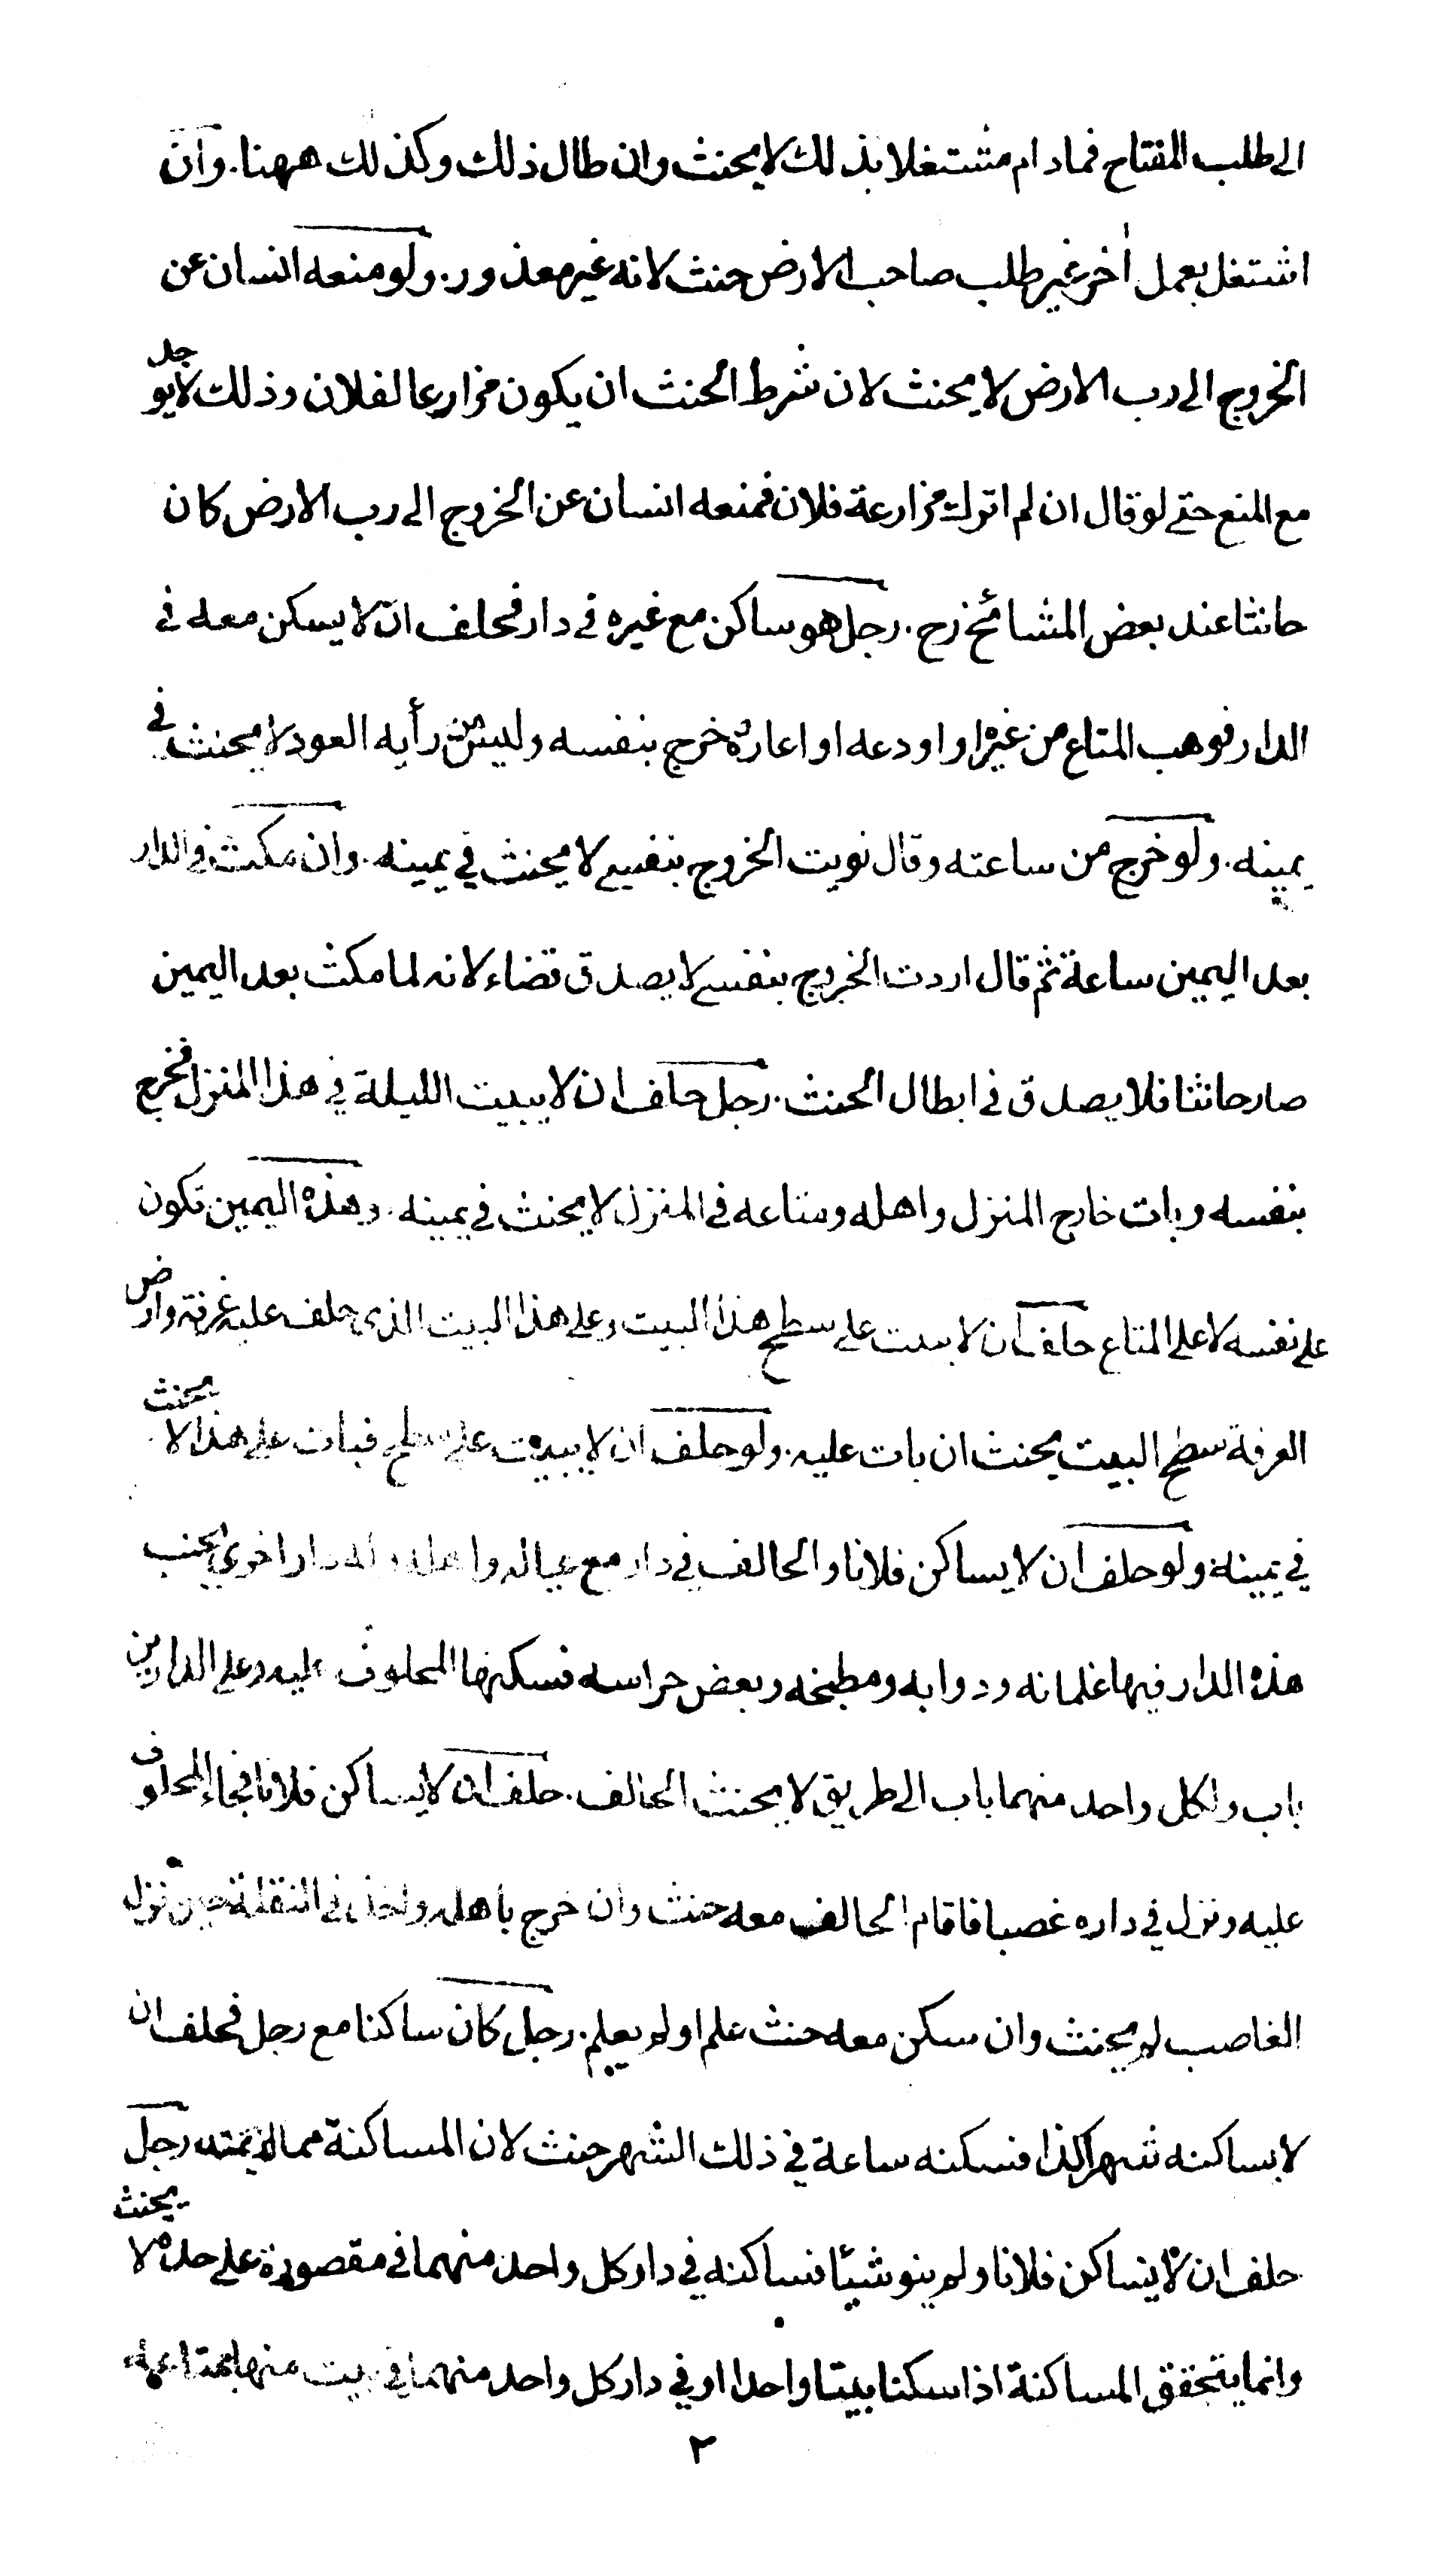 الى طلب المفتاح فمادام مشتغلا بذلك لا يحنث وان طال ذلك وكذلك ههنا. وان
اشتغل بعمل اٰخر غير طلب صاحب الارض حنث لانه غير معذور. ولو منعه انسان عن
الخروج الى رب الارض لا يحنث لان شرط الحنث ان يكون مزارعا لفلان وذلك لا يوجد
مع المنع حتى لو قال ان لم اترك مزارعة فلان فمنعه انسان عن الخروج الى رب الارض كان
حانثا عند بعض المشائخ رح. رجل هو ساكن مع غيره في دار فحلف ان لا يسكن معه في
الدار فوهب المتاع من غيره او اودعه او اعاره ثم خرج بنفسه وليس من رأيه العود لا يحنث في
يمينه. ولو خرج من ساعته وقال نويت الخروج بنفسي لا يحنث في يمينه. وان مكث في الدار
بعد اليمين ساعة ثم قال اردت الخروج بنفسي لا يصدق قضاء لانه لما مكث بعد اليمين
صار حانثا فلا يصدق في ابطال الحنث. رجل حلف ان لا يبيت الليلة في هذا المنزل فخرج
بنفسه وبات خارج المنزل واهله ومتاعه في المنزل لا يحنث في يمينه. وهذه اليمين تكون
على نفسه لا على المتاع حلف ان لا يبيت على سطح هذا البيت وعلى هذا البيت الذى حلف عليه غرفة وارض
الغرفة سطح البيت يحنث ان بات عليه. ولو حلف ان لا يبيت على سطح فبات على هذا لا يحنث
في يمينه ولو حلف ان لا يساكن فلانا والحالف في دار مع عياله واهله وله دار اخرى بجنب
هذه الدار فيها غلمانه ودوابه ومطبخه وبعض حراسه فسكنها المحلوف عليه وعلى الدارين
باب ولكل واحد منهما باب الى طريق لا يحنث الحالف. حلف ان لا يساكن فلانا فجاء المحلوف
عليه ونزل في داره غصبا فاقام الحالف معه حنث وان خرج باهله واخذ في النقلة حين نزل
الغاصب لم يحنث وان سكن معه حنث علم او لم يعلم. رجل كان ساكنا مع رجل فحلف ان
لا يساكنه شهر كذا فسكنه ساعة في ذلك الشهر حنث لان المساكنة مما لا يمتد رجل
حلف ان لا يساكن فلانا ولم ينو شيئا فساكنه في دار كل واحد منهما في مقصورة على حدة لا يحنث
وانما يتحقق المساكنة اذا سكنا بيتا واحدا او في دار كل واحد منهما في بيت منها
٢